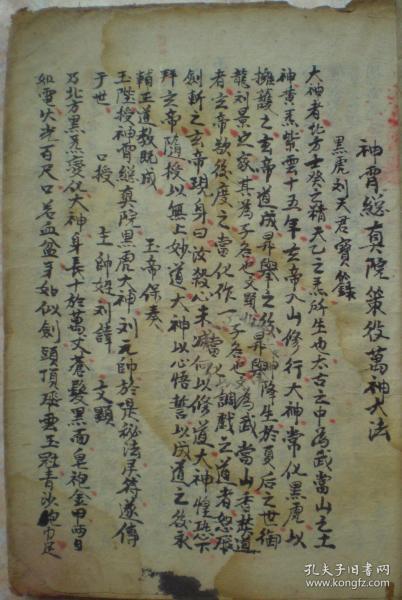 神霄總真院策役萬神大法
黑虎刘天君寳籙
大神者北方壬癸之精天乙之炁所生也太古之中為武當山之土
神黄炁紫雲十五年玄帝入山修行大神常化黑虎以
擁護之玄帝道成昇舉之後神降生於夏后之世御
龍刘景之家其為子名也文顯昇舉
者玄帝欲後度之當化作一子名也文為武當山香
劍斬之玄帝現身曰汝殺心未除何以修道大神惶恐下
拜玄帝随授以無上妙道大神以心悟誓以成道之後永
輔正道教既成 玉帝保奏
玉陛授神霄總真院黑虎大神刘元帥於是秘法灵符遂傳
于世 口授 主帥姓刘諱 文顯
乃北方黑炁變化大神身長十於萬丈蒼髮黑面皂袍金甲两目
如電火光百尺口若血盆牙如似劍頭頂飛雲玉冠青沙 巾足
孔夫子旧书网
www.kongfz.com